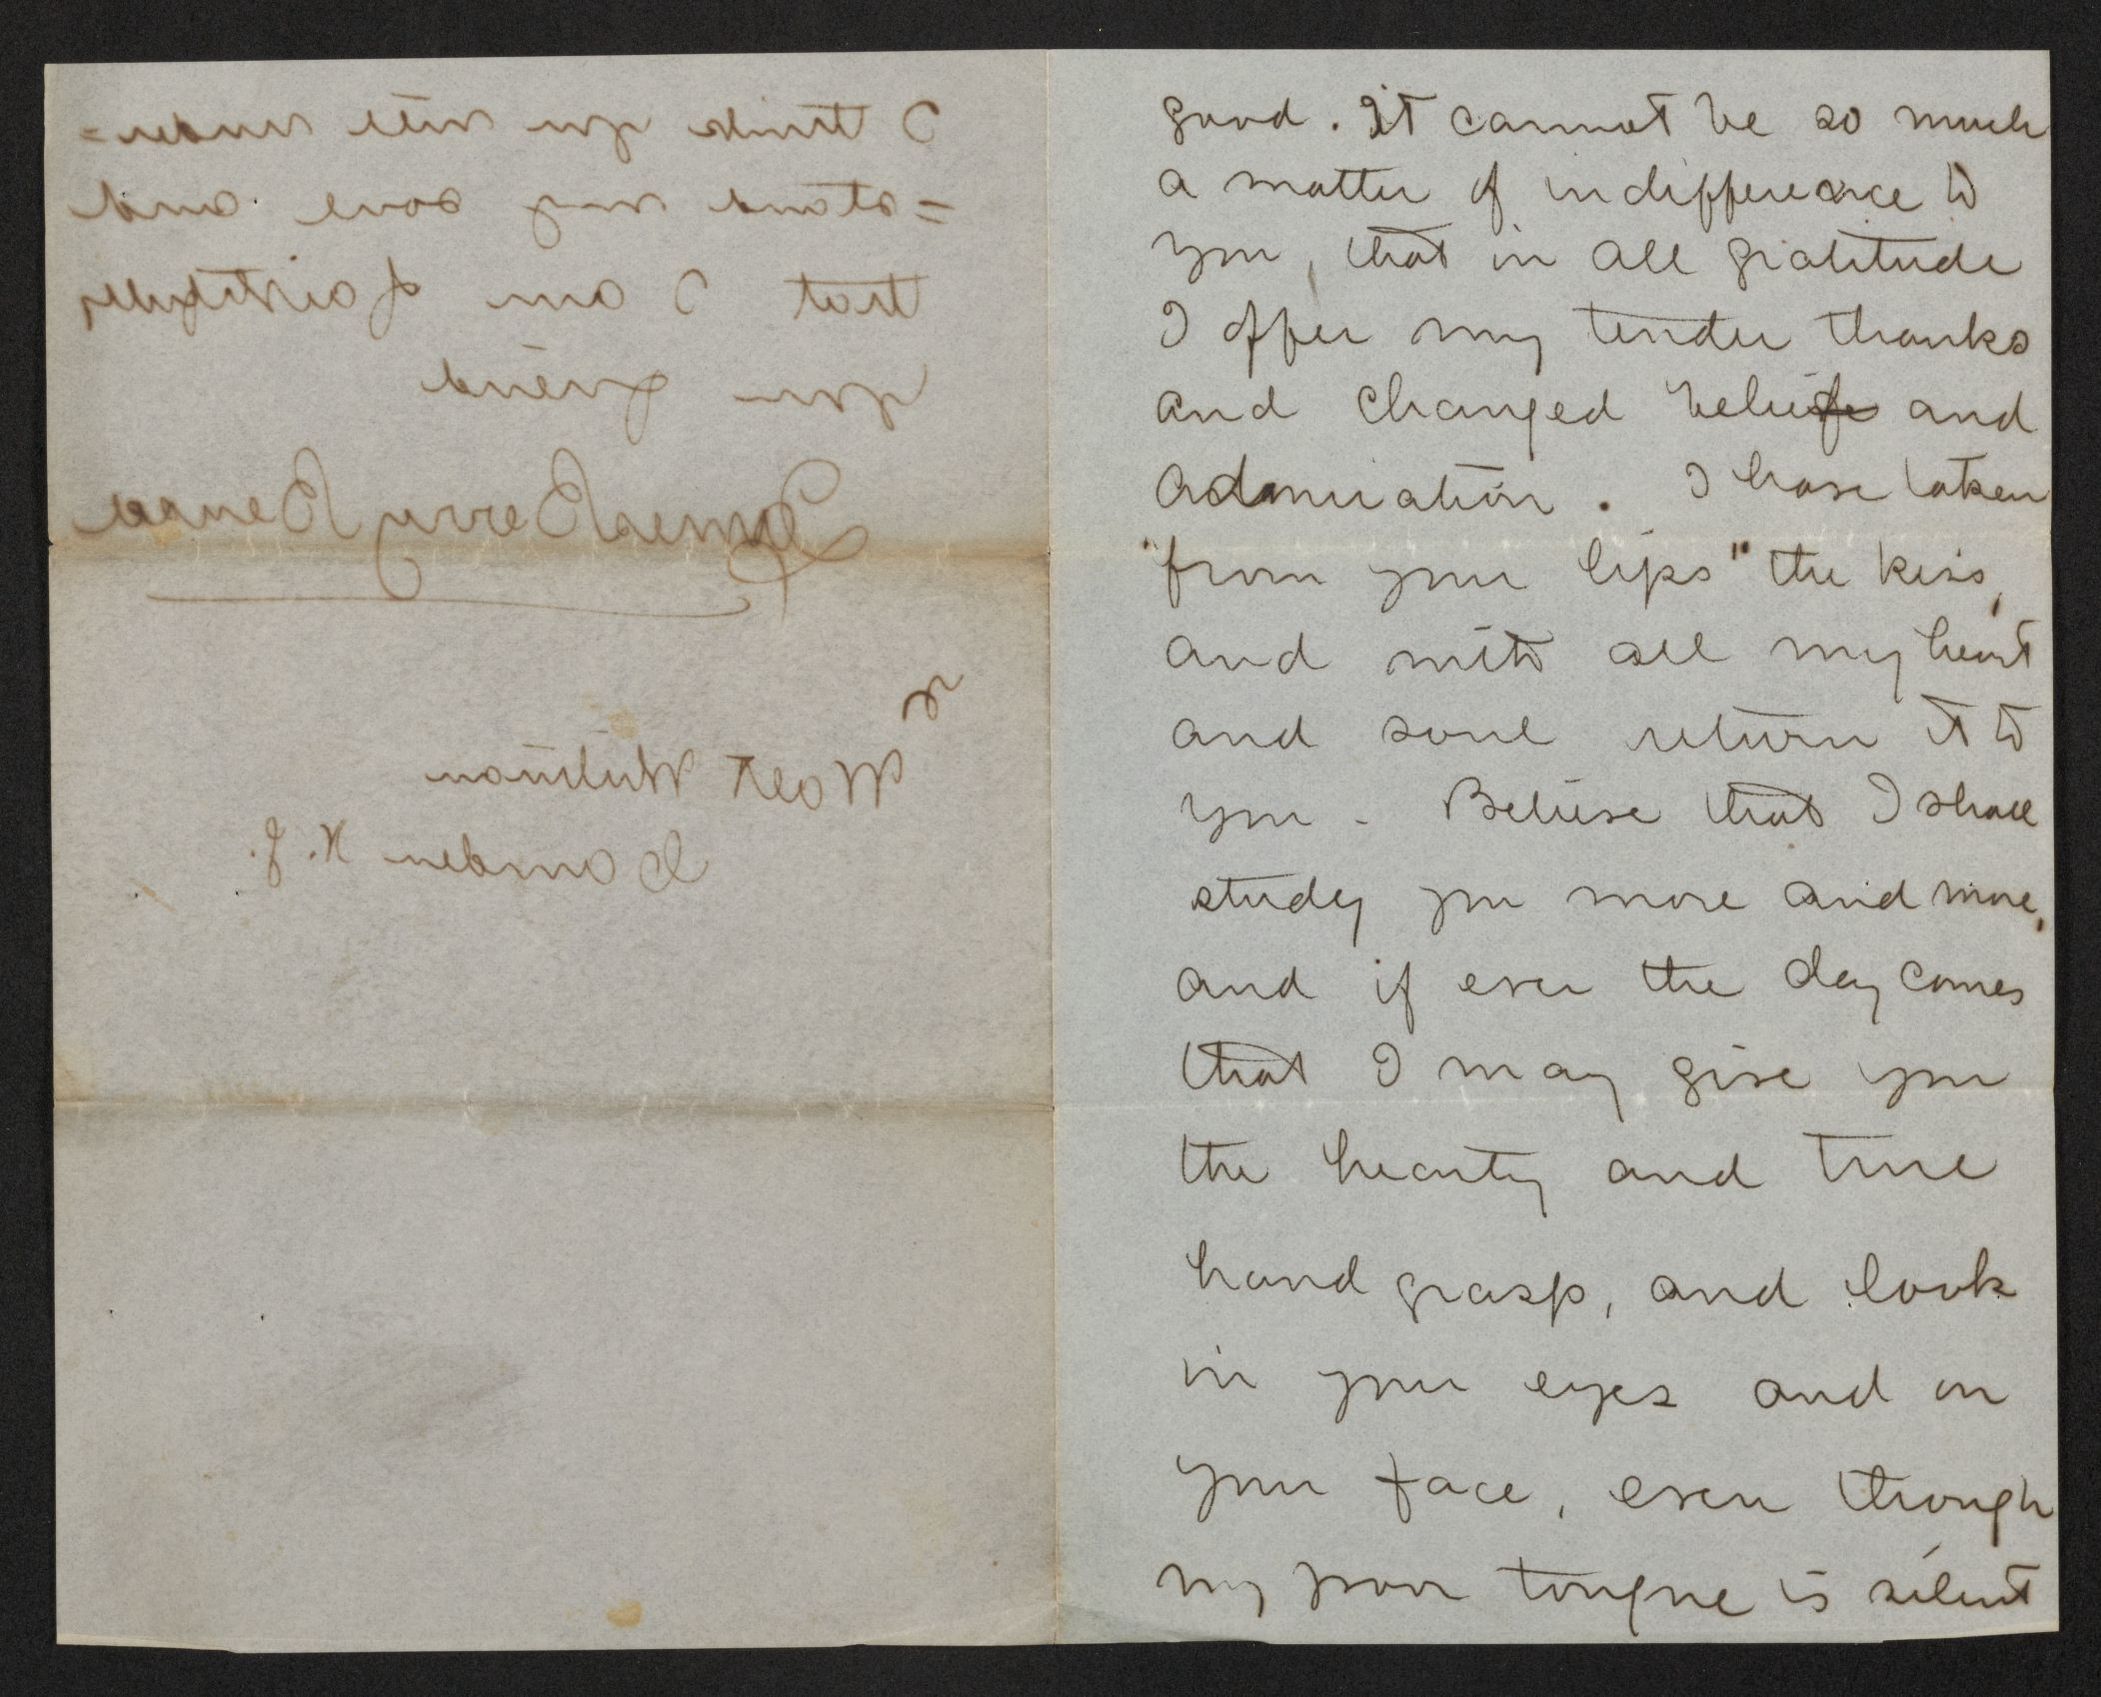 good. It cannot be so much
a matter of indifference to
you, that in all gratitude
I offer my tender thanks
and changed belief and
admiration. I have taken
"from your lips" the kiss,
and with all my heart
and soul return it to
you - Believe that I shall
study you more and more,
and if ever the day comes
that I may give you
the hearty and true
hand grasp, and look
in your eyes and on
your face, even though
my poor tongue is silent
I think you will under=
=stand my love and
that I am faithfully
your friend
James Berry Bensel
Walt Whitman
Camden N. J.